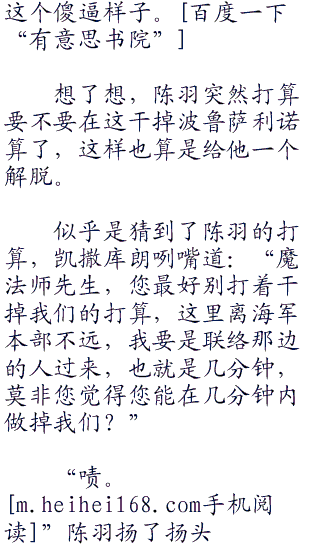 这个傻逼样子。[百度一下
“有意思书院”]
想了想，陈羽突然打算
要不要在这干掉波鲁萨利诺
算了，这样也算是给他一个
解脱。
似乎是猜到了陈羽的打
算，凯撒库朗咧嘴道：“魔
法师先生，您最好别打着干
掉我们的打算，这里离海军
本部不远，我要是联络那边
的人过来，也就是几分钟，
莫非您觉得您能在几分钟内
做掉我们？”
“啧。
[m.heihei168.com手机阅
读]”陈羽扬了扬头